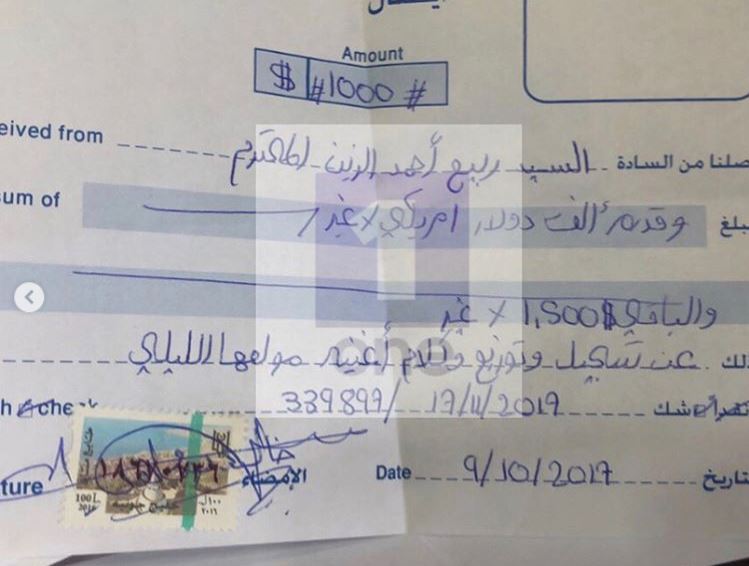 ايصال
Amount
$ #1000 #
eived from السيد ربيع أحمد الزين المحترم صلنا من السادة
um of وقدره ألف دولار امريكي لا غير مبلغ
والباقي 1,500$ لا غير
ذلك عن تسجيل وتوزيع وكلام أغنية مولعها الليلي
one
339899/ 17/11/2017 شك
ture الإمضاء Date 9/10/2017 تاريخ
100 L.
2016
١٠٠ ل.
٢٠١٦
خليج جونيه